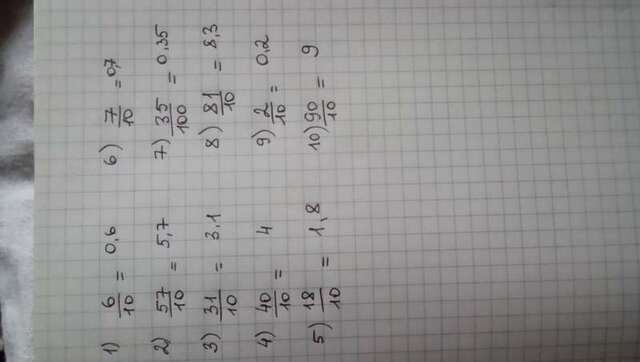 1) 6/10 = 0,6
2) 57/10 = 5,7
3) 31/10 = 3,1
4) 40/10 = 4
5) 18/10 = 1,8
6) 7/10 = 0,7
7) 35/100 = 0,35
8) 81/10 = 8,3
9) 2/10 = 0,2
10) 90/10 = 9